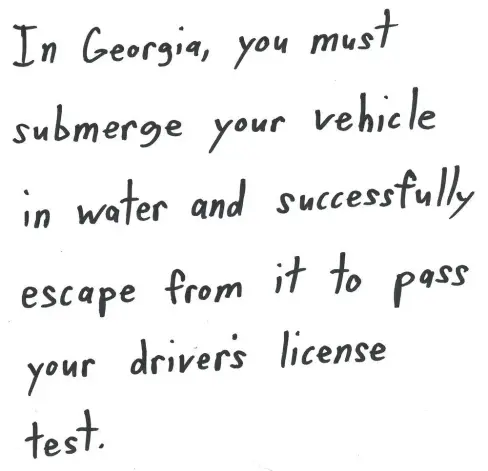 In Georgia, you must
submerge your vehicle
in water and successfully
escape from it to pass
your driver's license
test.